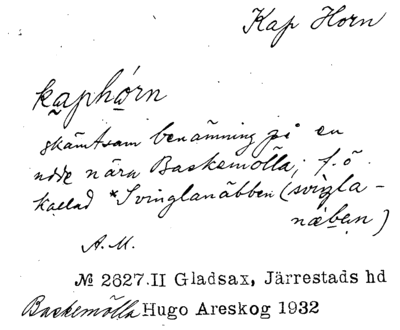 Kap Horn
kaphórn
skämtsam benämning på en
udde nära Baskemölla; f.ö.
kallad *Svinglanäbben (svigla-
næben)
A.M.
№ 2627.II Gladsax, Järrestads hd
Baskemölla Hugo Areskog 1932